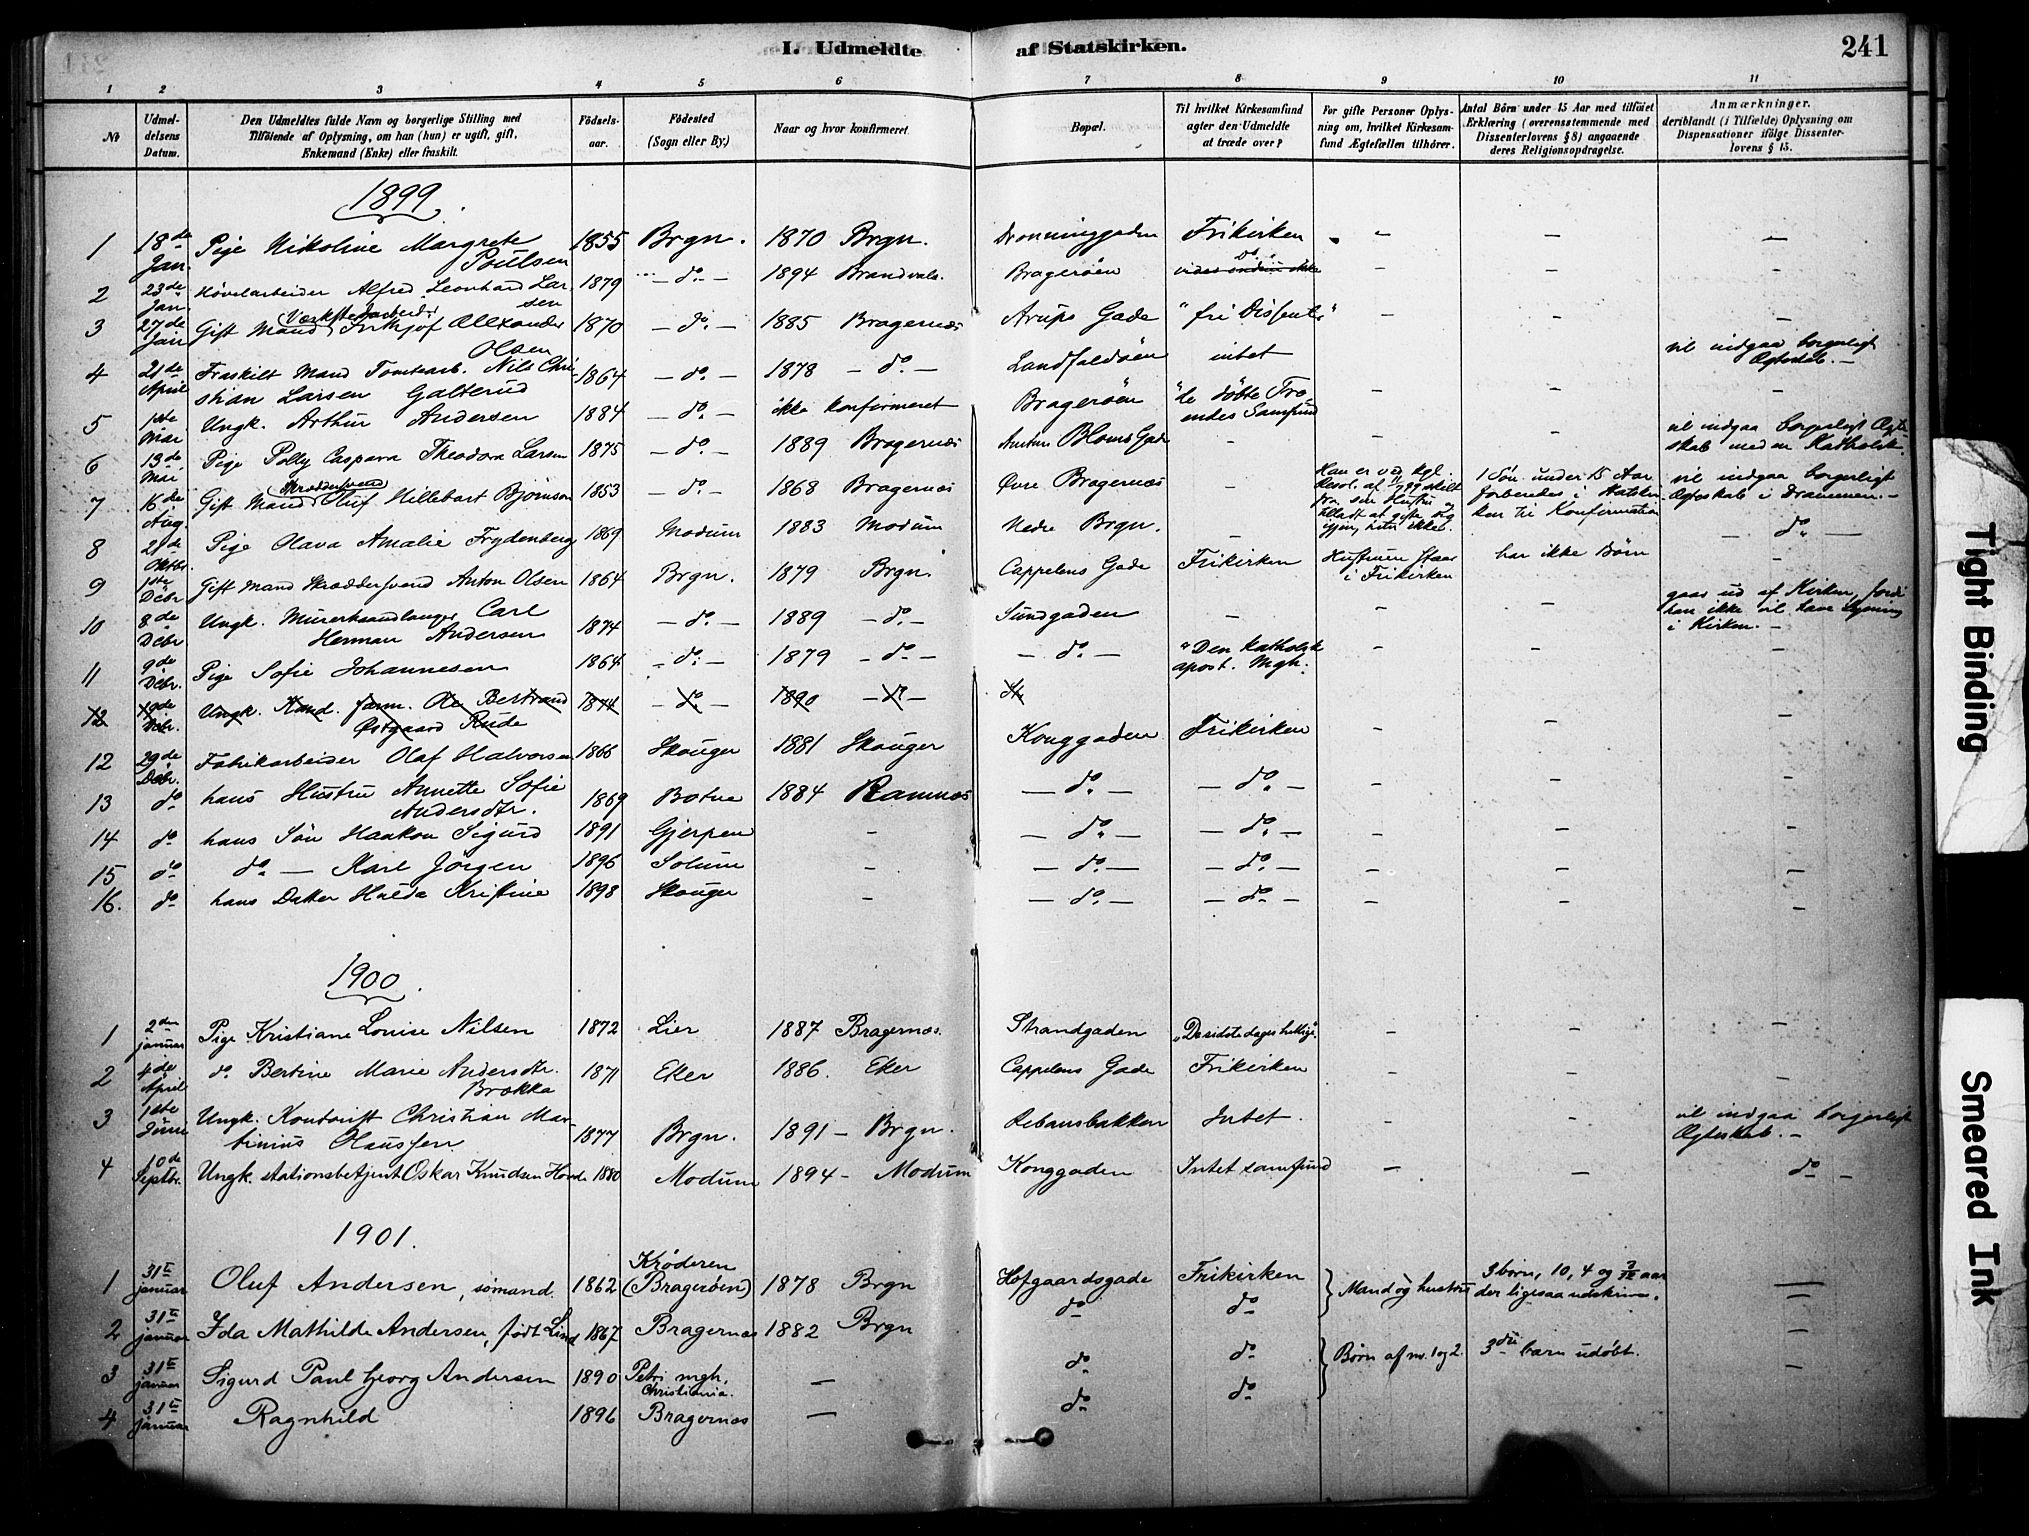 I. Udmeldte af Statskirken. 241
1 2 3 4 5 6 7 8 9 10 11
No
Udmeldelsens Datum.
Den Udmeldtes fulde Navn og borgerlige Stilling med Tilføiende af Oplysning, om han (hun) er ugift, gift, Enkemand (Enke) eller fraskilt.
Fødselsaar.
Fødested (Sogn eller By.)
Naar og hvor konfirmeret.
Bopæl.
Til hvilket Kirkesamfund agter den Udmeldte at træde over?
For gifte Personer Oplysning om, hvilket Kirkesamfund Ægtefællen tilhører.
Antal Børn under 15 Aar med tilføiet Erklæring (overensstemmende med Dissenterlovens § 8) angaaende deres Religionsopdragelse.
Anmærkninger, deriblandt (i Tilfælde) Oplysning om Dispensationer ifølge Dissenterlovens § 15.
1899
1 18de Jan. Pige Nikoline Margrete Poulsen 1855 Brgn. 1870 Brgn. Dronninggaden Frikirken - - -
2 23de Jan. Høvelarbeider Alfred Leonhard Larsen 1879 - do - 1894 Brandval. Bragerøen Do. - - -
3 27de Jan Gift Mand Værkstedarbeid. Frithjof Alexander Olsen 1870 - do. - 1885 Bragernæs Arups Gade "fri Dissenter" - - -
4 21de April Fraskilt Mand Tomtearb. Nils Christian Larsen Galterud 1864 - do. - 1878 - do. - Landfaldøen intet vil indgaa borgerligt Ægteskab. -
5 1ste Mai Ungk. Arthur Andersen 1884 - do. - ikke konfirmeret Bragerøen "de døbte Troendes Samfund - - -
6 13de Mai Pige Polly Caspara Theodora Larsen 1875 - do. - 1889 Bragernæs Anton Bloms Gade - - - vil indgaa borgerligt Ægteskab med en Katholsk.
7 16de Aug. Gift Mand Skræddersvend Oluf Hillebart Bjørnson 1853 - do. - 1868 Bragernæs Øvre Bragernæs Han er ved kgl. Resol. af skilt fra sin Hustru tilladt at gifte sig igjen, ikke. 1 Søn under 15 Aar forberedes i Statskirken til Konfirmation vil indgaa borgerligt Ægteskab i Drammen. -
8 21de Oktbr. Pige Olava Amalie Frydenberg 1869 Modum 1883 Modum Nedre Brgn. - - do -
9 1ste Debr Gift Mand Skræddersvend Anton Olsen 1864 Brgn. 1879 Brgn. Cappelens Gade Frikirken Hustruen staar i Frikirken har ikke Børn -
10 8de Debr Ungk. Murerhaandlanger Carl Herman Andersen 1874 - do. - 1889 - do. - Sundgaden - - - gaar ud af Kirken, fordi han ikke vil have Lysning i Kirken. -
11 9de Debr. Pige Sofie Johannesen 1864 - do. - 1879 - do - - do. - "Den katholsk apost. Mgh. - - -
12 19de Debr. Ungk. Kand. farm. Ole Bertrand Østgaard Rude 1874 - do. - 1890 - do -
12 29de Debr. Fabrikarbeider Olaf Halvorsen 1866 Skouger 1881 Skouger Konggaden Frikirken - - -
13 do hans Hustru Annette Sofie Andersdtr. 1869 Botne 1884 Ramnæs - do. - - do. - - - -
14 do hans Søn Haakon Sigurd 1891 Gjerpen - - do. - - do. - - - -
15 do do. - Karl Jørgen 1896 Solum - - do. - - do. - - - -
16. do hans Datter Hulda Kristine 1898 Skouger - - do. - - do. - - - -
1900
1 2den januar Pige Kristiane Louise Nilsen 1872 Lier 1887 Bragernæs. Strandgaden "De sidste dages hellige". - - -
2 4de April do. Bertine Marie Andersdtr. Brokka 1871 Eker 1886. Eker Cappelens Gade Frikirken - - -
3 1ste Juni Ungk. Kontorist Christian Martinius Claussen 1877 Brgn. 1891 - Brgn. Libansbakken Intet - - vil indgaa borgerligt Ægteskab. -
4 10de Septbr. Ungk. stationsbetjent Oskar Knudsen Hovde 1880 Modum 1894 - Modum Konggaden Intet samfund - - do -
1901.
1 31te januar Oluf Andersen, sømand. 1862 Krøderen (Bragerøen) 1878 Brgn Hofgaardsgade Frikirken Mand og hustru 3 børn, 10, 4 og 3/12 aar der ligesaa udskrives. -
2 31te januar Ida Mathilde Andersen, født Lind 1867 Bragernæs 1882 Brgn do do -
3 31te januar Sigurd Paul Georg Andersen 1890 Petri mgh. Christiania. - do do Børn af no. 1 og 2. 3die barn udøbt. -
4 31te januar Ragnhild 1896 Bragernæs - do do -
Tight Binding
Smeared Ink